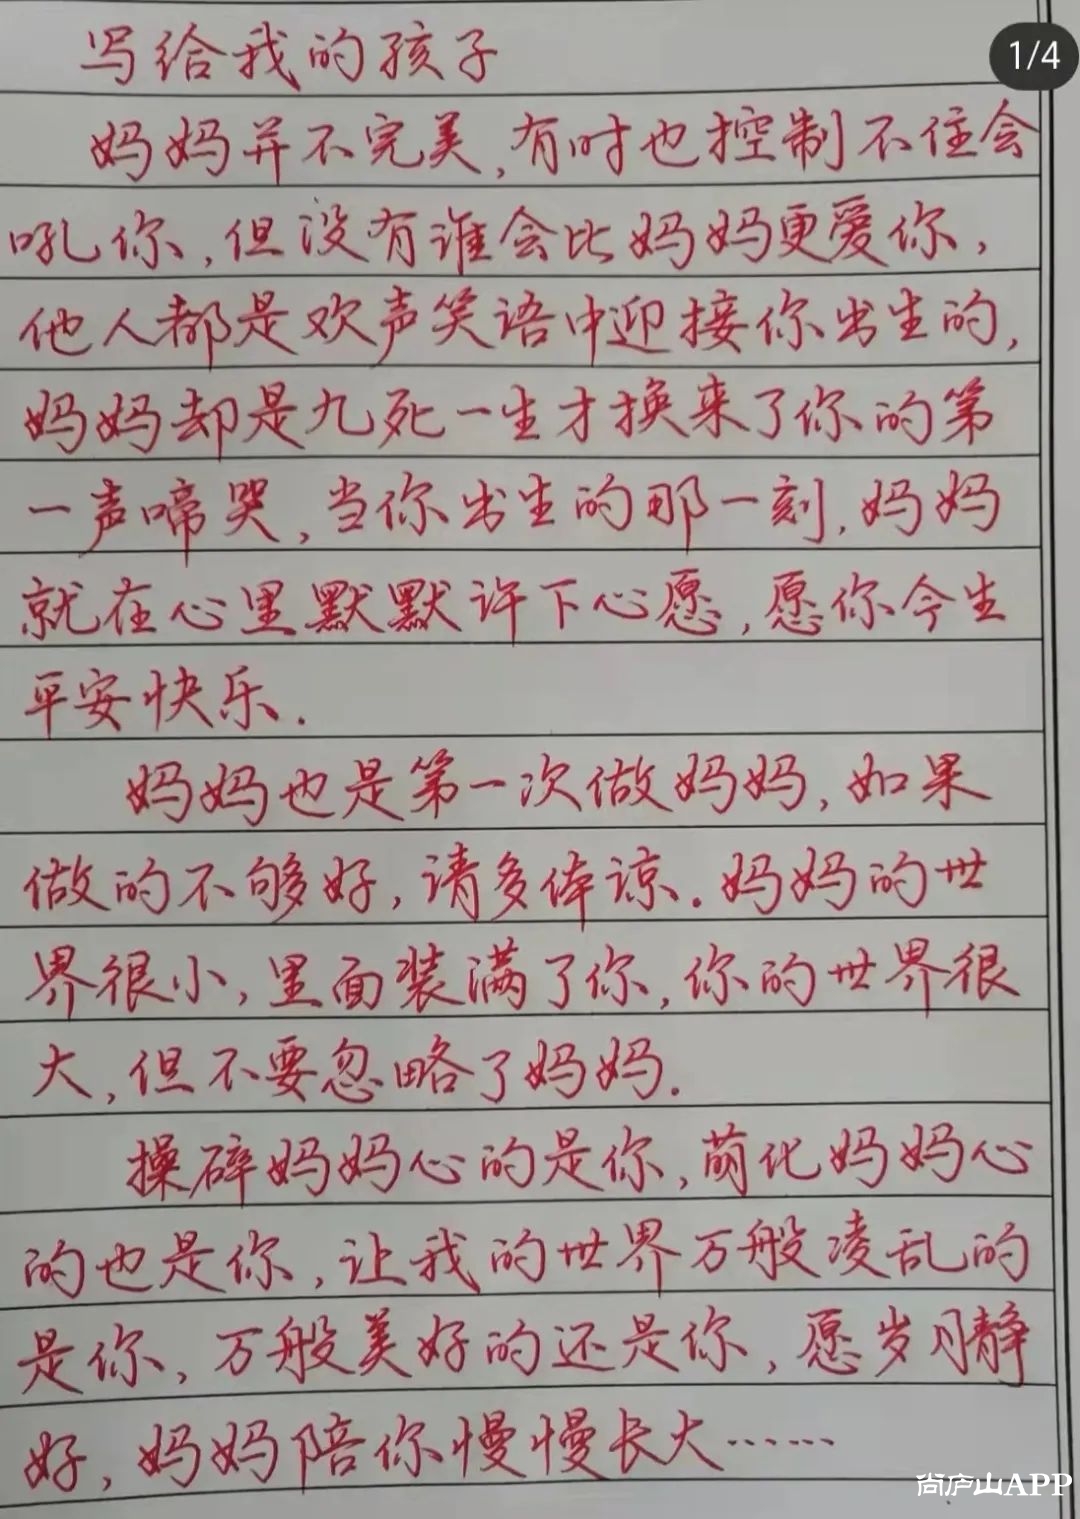 1/4
写给我的孩子
妈妈并不完美,有时也控制不住会
吼你,但没有谁会比妈妈更爱你,
他人都是欢声笑语中迎接你出生的,
妈妈却是九死一生才换来了你的第
一声啼哭,当你出生的那一刻,妈妈
就在心里默默许下心愿,愿你今生
平安快乐.
妈妈也是第一次做妈妈,如果
做的不够好,请多体谅.妈妈的世
界很小,里面装满了你,你的世界很
大,但不要忽略了妈妈.
操碎妈妈心的是你,萌化妈妈心
的也是你,让我的世界万般凌乱的
是你,万般美好的还是你,愿岁月静
好,妈妈陪你慢慢长大……
尚庐山APP